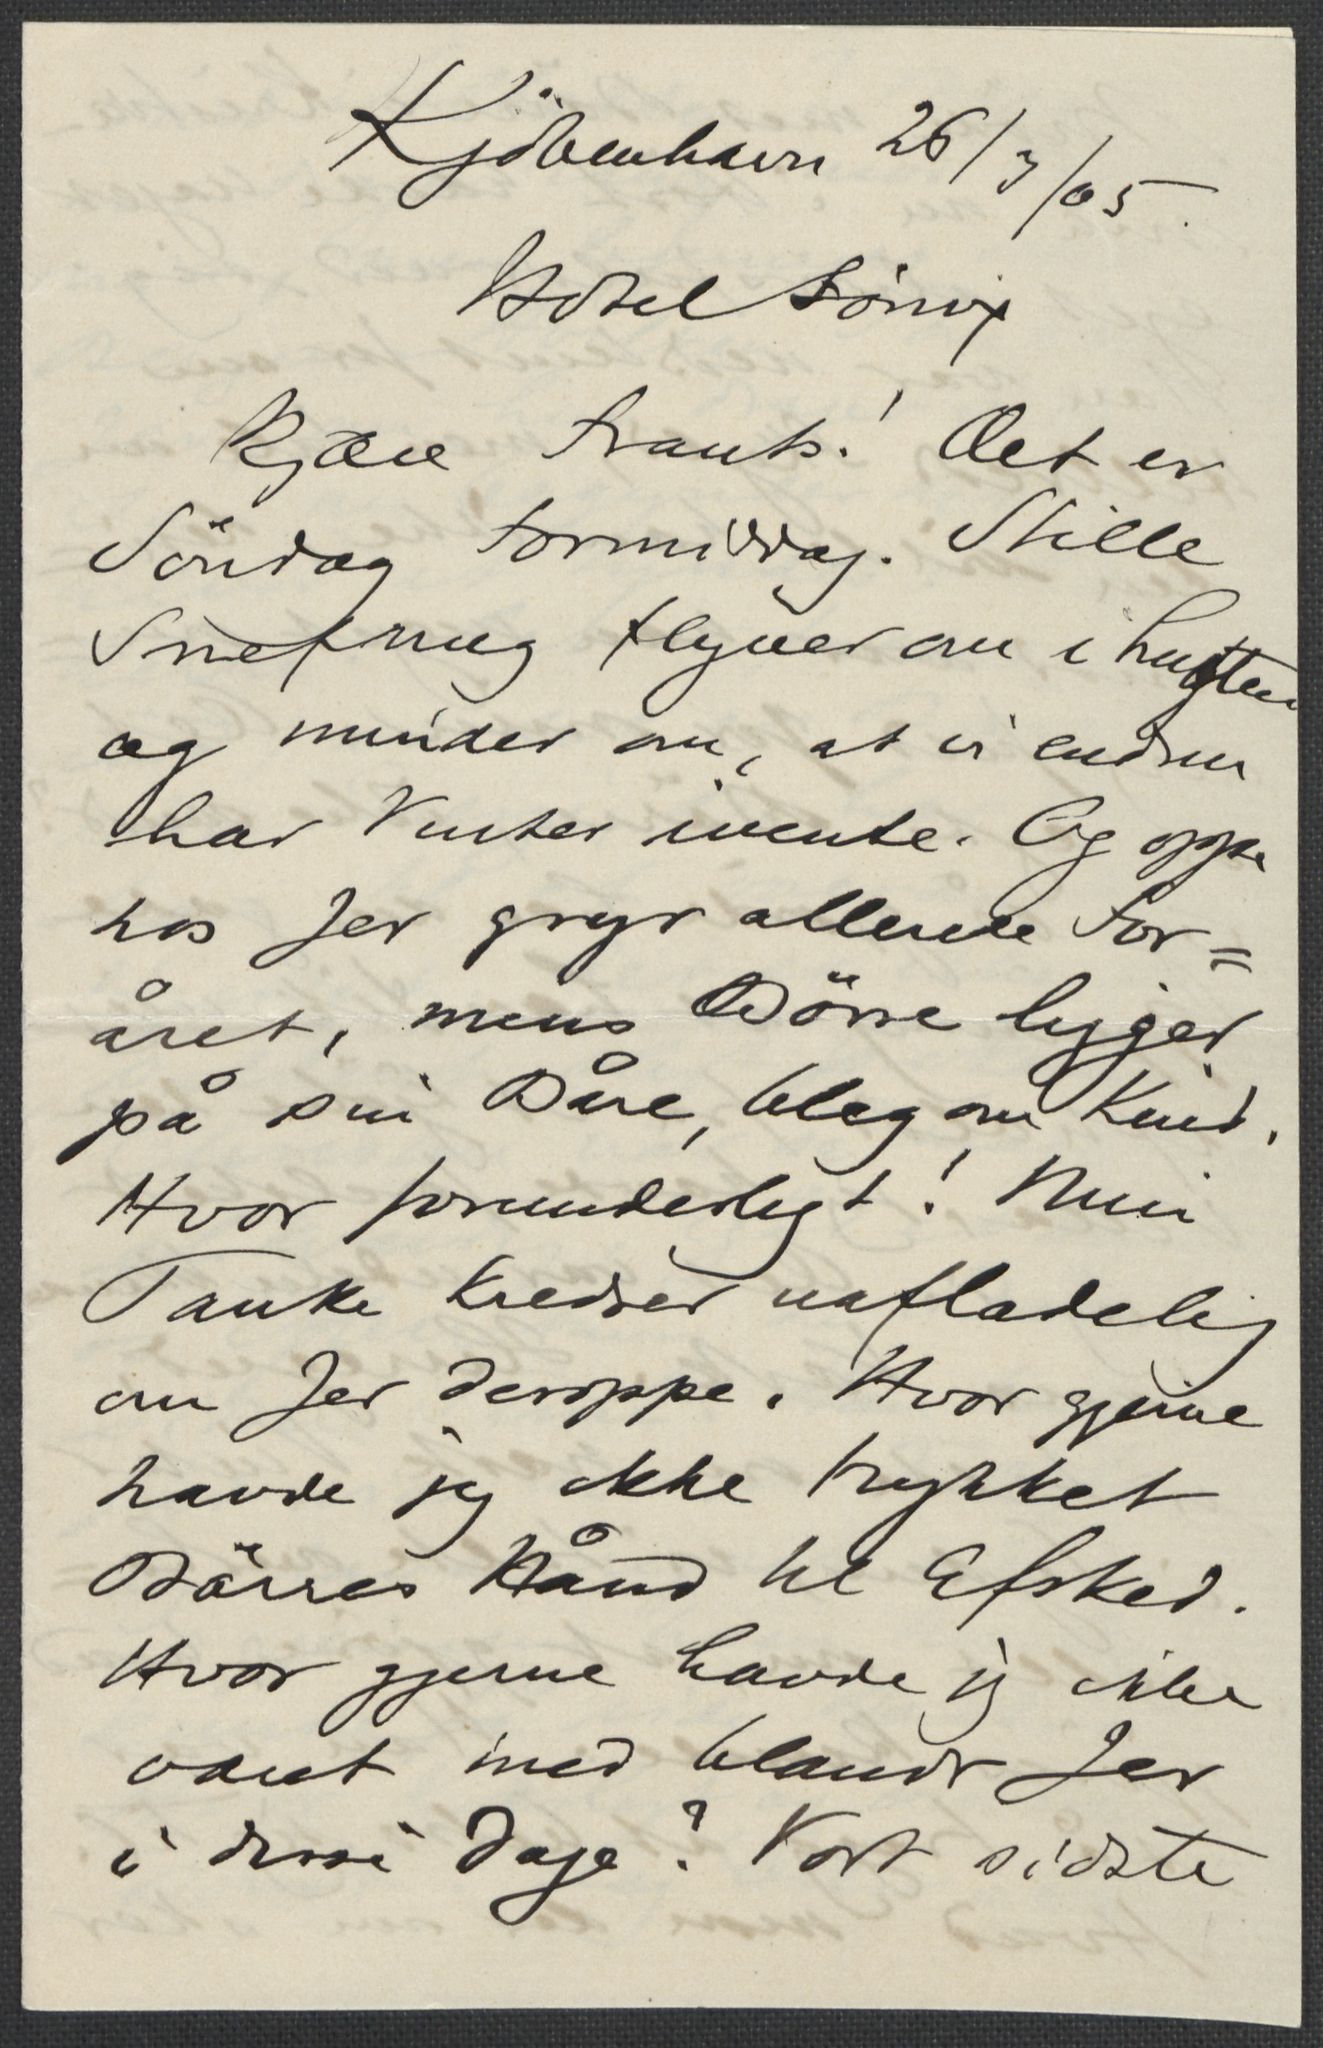 Kjöbenhavn 26/3/05.
Hotel Fönix
Kjære Frants! Det er
Söndag Formiddag. Stille
Snefnug flyver om i Luften
og minder om, at vi endnu
har Vinter ivente. Og oppe
hos Jer gryr allerede For=
året, mens Börre ligger
på sin Båre, bleg om Kind.
Hvor forunderligt! Min
Tanke kredser uafladelig
om Jer deroppe. Hvor gjerne
havde jeg ikke trykket
Börres Hånd til Afsked.
Hvor gjerne havde jeg ikke
været med blandt Jer
i disse Dage? Vort sidste